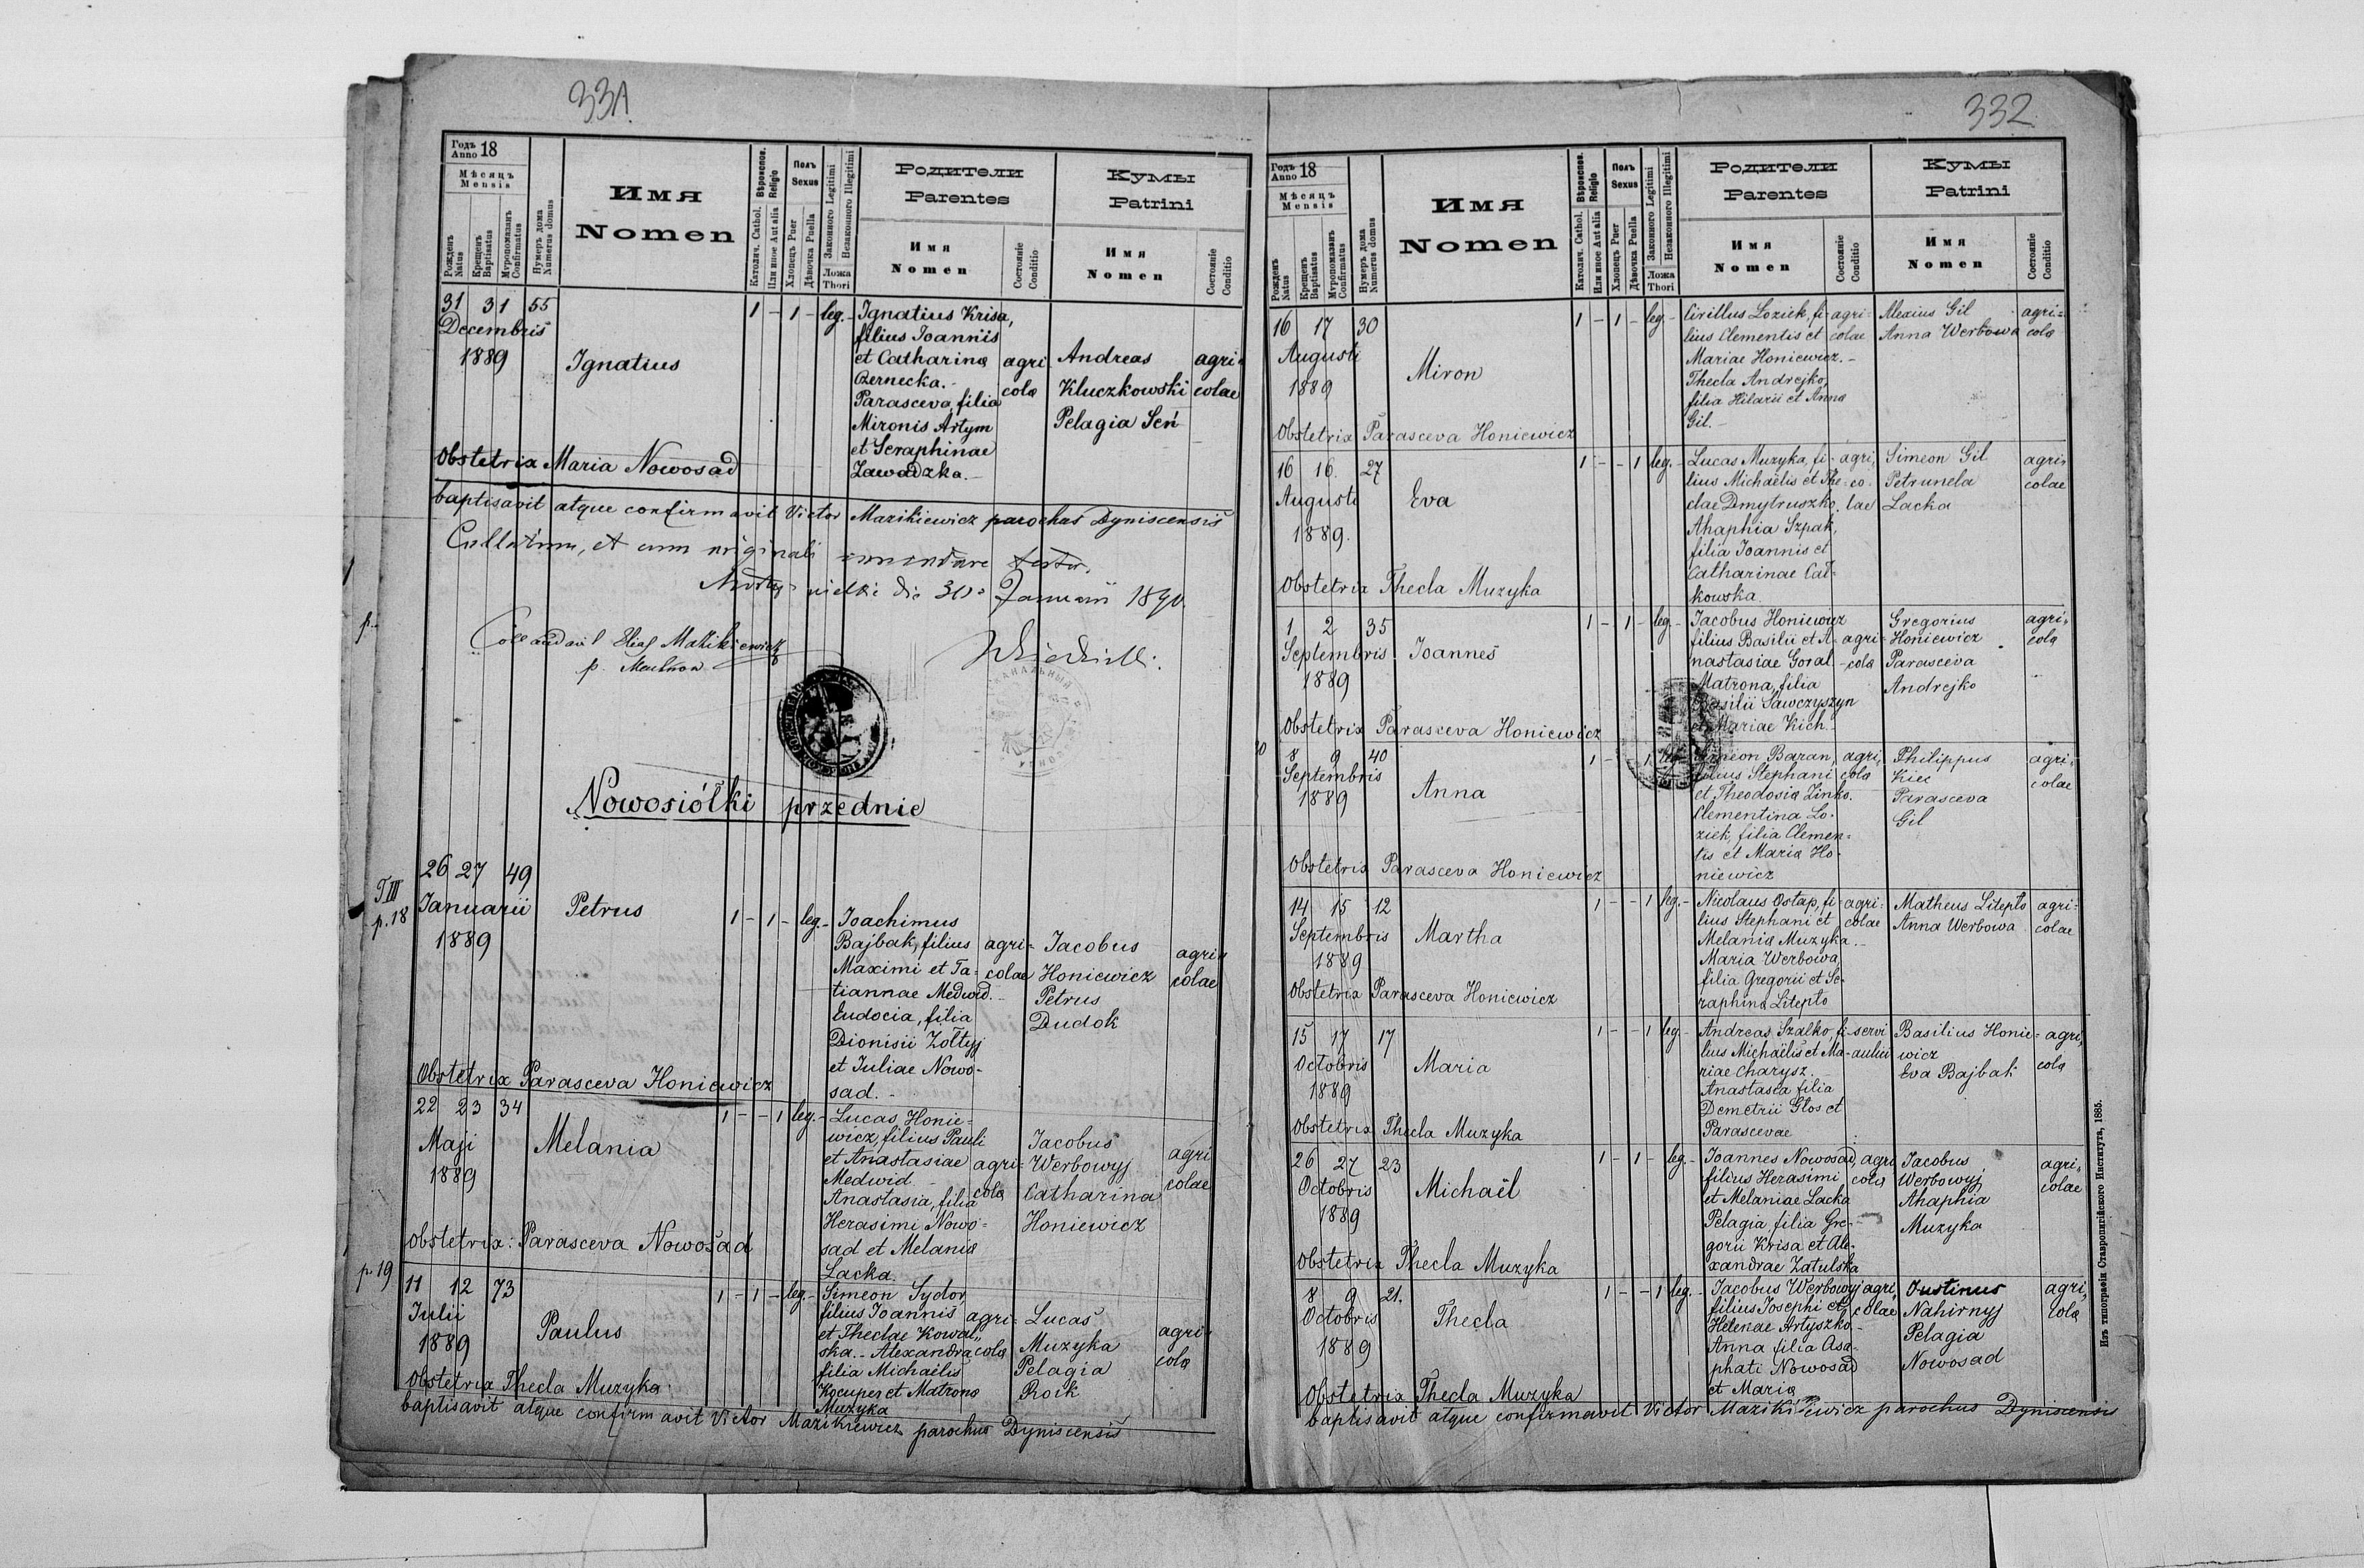 33A
Годъ Anno 18
Мѣсяцъ Mensis
Рожденъ Natus
Крещенъ Baptisatus
Мѵропомазанъ Confirmatus
Нумеръ дома Numerus domus
Имя Nomen
Вѣроиспов. Religio
Католич. Cathol.
Или иное Aut alia
Полъ Sexus
Хлопецъ Puer
Дѣвочка Puella
Законного Legitimi
Незаконного Illegitimi
Ложа Thori
Родители Parentes
Имя Nomen
Состояніе Conditio
Кумы Patrini
Имя Nomen
Состояніе Conditio
31 31 55
Decembris
1889
Ignatius
1 - 1 - leg. -
Ignatius Krisa,
filius Joannis
et Catharina
Czernecka. -
Parasceva, filia
Mironis Artym
et Seraphinae
Zawadzka. -
agri
cola
Andreas
Kluczkowski
Pelagia Seń
agri=
colae
Obstetrix Maria Nowosad
baptisavit atque confirmavit Victor Mazikiewicz parochus Dyniscensis
Collatum, et cum originali
die 30 Januarii 1890
p.
Nowosiółki przednie
T III
p. 18
26 27 49
Januarii
1889
Petrus
1 - 1 - leg. -
Joachimus
Bajbak, filius
Maximi et Ta=
tiannae Medwid. -
Eudocia, filia
Dionisii Żołtyj
et Juliae Nowo-
sad. -
agri=
colae
Jacobus
Honiewicz
Petrus
Dudok
agri=
colae
Obstetrix Parasceva Honiewicz
22 23 34
Maji
1889
Melania
1 - - 1 leg. -
Lucas Honie=
wicz, filius Pauli
et Anastasiae
Medwid. -
Anastasia, filia
Herasimi Nowo=
sad et Melania
Lacka.
agri=
cola
Jacobus
Werbowyj
Catharina
Honiewicz
agri
colae
obstetrix: Parasceva Nowosad
p. 19
11 12 73
Julii
1889
Paulus
1 - 1 - leg. -
Simeon Sydor
filius Joannis
et Theclae Kowal=
ska. - Alexandra
filia Michaelis
Kocuper et Matrona
Muzyka
agri=
cola
Lucas
Muzyka
Pelagia
Roik
agri=
cola
Obstetrix Thecla Muzyka
baptisavit atque confirmavit Victor Mazikiewicz parochus Dyniscensis
332
Годъ Anno 18
Мѣсяцъ Mensis
Рожденъ Natus
Крещенъ Baptisatus
Мѵропомазанъ Confirmatus
Нумеръ дома Numerus domus
Имя Nomen
Вѣроиспов. Religio
Католич. Cathol.
Или иное Aut alia
Полъ Sexus
Хлопецъ Puer
Дѣвочка Puella
Законного Legitimi
Незаконного Illegitimi
Ложа Thori
Родители Parentes
Имя Nomen
Состояніе Conditio
Кумы Patrini
Имя Nomen
Состояніе Conditio
16 17 30
Augusti
1889
Miron
1 - 1 - leg -
Cirillus Loziek, fi-
lius Clementis et
Mariae Honiewicz. -
Thecla Andrejko,
filia Hilarii et Anna
Gil. -
agri-
colae
Alexius Gil
Anna Werbowa
agri=
cola
Obstetrix Parasceva Honiewicz
16 16. 27
Augusti
1889.
Eva
1 - - 1 leg. -
Lucas Muzyka, fi-
lius Michaëlis et The-
clae Dmytruszko.
Ahaphia Szpak,
filia Joannis et
Catharinae Cał-
kowska.
agri,
co-
lae
Simeon Gil
Petrunela
Lacka
agri=
colae
Obstetrix Thecla Muzyka
1 2 35
Septembris
1889
Joannes
1 - 1 - leg -
Jacobus Honiewicz
filius Basilii et A-
nastasiae Goral -
Matrona, filia
Basilii Sawczyszyn
et Mariae Kich. -
agri=
cola
Gregorius
Honiewicz
Parasceva
Andrejko
agri=
cola
Obstetrix Parasceva Honiewicz
8 9 40
Septembris
1889
Anna
1 - - 1 leg
Simeon Baran,
filius Stephani
et Theodosia Zinko.
Clementina Lo-
ziek, filia Clemen=
tis et Maria Ho-
niewicz
agri,
cola
Philippus
Kiec
Parasceva
Gil
agri=
colae
Obstetrix Parasceva Honiewicz
14 15 12
Septembris
1889
Martha
1 - - 1 leg. -
Nicolaus Ostap, fi-
lius Stephani et
Melania Muzyka. -
Maria Werbowa,
filia Gregorii et Se-
raphina Litepło
agri=
colae
Matheus Litepło
Anna Werbowa
agri=
colae
Obstetrix Parasceva Honiewicz
15 17 17
Octobris
1889
Maria
1 - - 1 leg -
Andreas Szalko, fi-
lius Michaëlis et Ma-
riae Charysz.
Anastasia filia
Demetrii Glos et
Parascevae
servi
aulici
Basilius Honie=
wicz
Eva Bajbak
agri,
cola
Obstetrix Thecla Muzyka
26 27 23
Octobris
1889
Michaël
1 - 1 - leg. -
Joannes Nowosad,
filius Herasimi
et Melaniae Lacka
Pelagia, filia Gre-
gorii Krisa et Ale-
xandrae Zatulska
agri
cola
Jacobus
Werbowyj
Ahaphia
Muzyka
agri,
colae
Obstetrix Thecla Muzyka
8 9 21.
Octobris
1889
Thecla
1 - - 1 leg. -
Jacobus Werbowyj
filius Josephi et
Helenae Artyszko. -
Anna filia Asa-
phati Nowosad
et Maria
agri,
colae
Oustinus
Nahirnyj
Pelagia
Nowosad
agri,
cola
Obstetrix Thecla Muzyka
baptisavit atque confirmavit Victor Mazikiewicz parochus Dyniscensis
Изъ типографіи Ставропигійского Института, 1885.